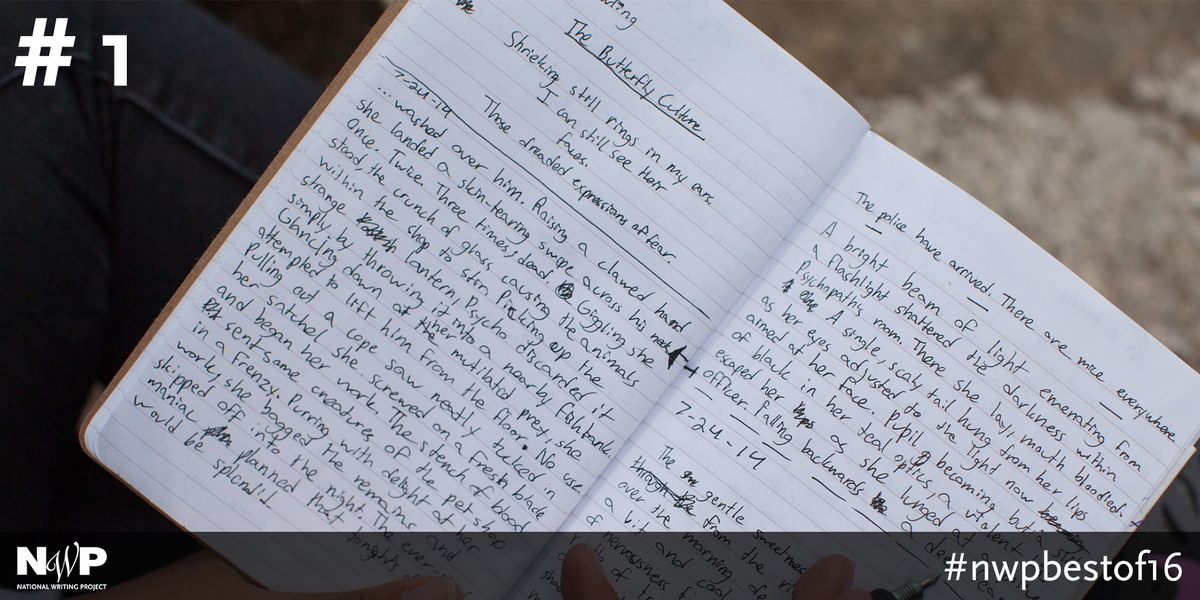 #1
The Butterfly Culture
Shrieking still rings in my ears.
I can still see their
faces.
Those dreaded expressions of fear.
7-24-14
...washed over him. Raising a clawed hand
she landed a skin-tearing swipe across his neck
Once. Twice. Three times; dead. Giggling she
stood, the crunch of glass causing the animals
within the shop to stir. Picking up the
strange lantern, Psycho discarded it
simply by throwing it into a nearby fishtank.
Glancing down at her mutilated prey, she
attempted to lift him from the floor. No use.
Pulling out a cope saw neatly tucked in
her satchel, she screwed on a fresh blade
and began her work. The stench of blood
sent some creatures of the pet shop
in a frenzy. Purring with delight at her
work, she bagged the remains and
skipped off into the night. The ever
maniac planned that tonight
would be splendid!
The police have arrived. There are mice everywhere.
A bright beam of light emerating from
a flashlight shattered the darkness within
Psychopath's room. There she lay, mouth bloodied.
A single, scaly tail hung from her lips
as her eyes adjusted to the light now
aimed at her face. Pupil becoming but a
of black in her teal optics, a violent
escaped her as she lunged at
officer. Falling backwards a
7-24-14
The gentle sweetness
from the
over the morning
a bit and cool
of nervousness
of
NWP
NATIONAL WRITING PROJECT
#nwpbestof16